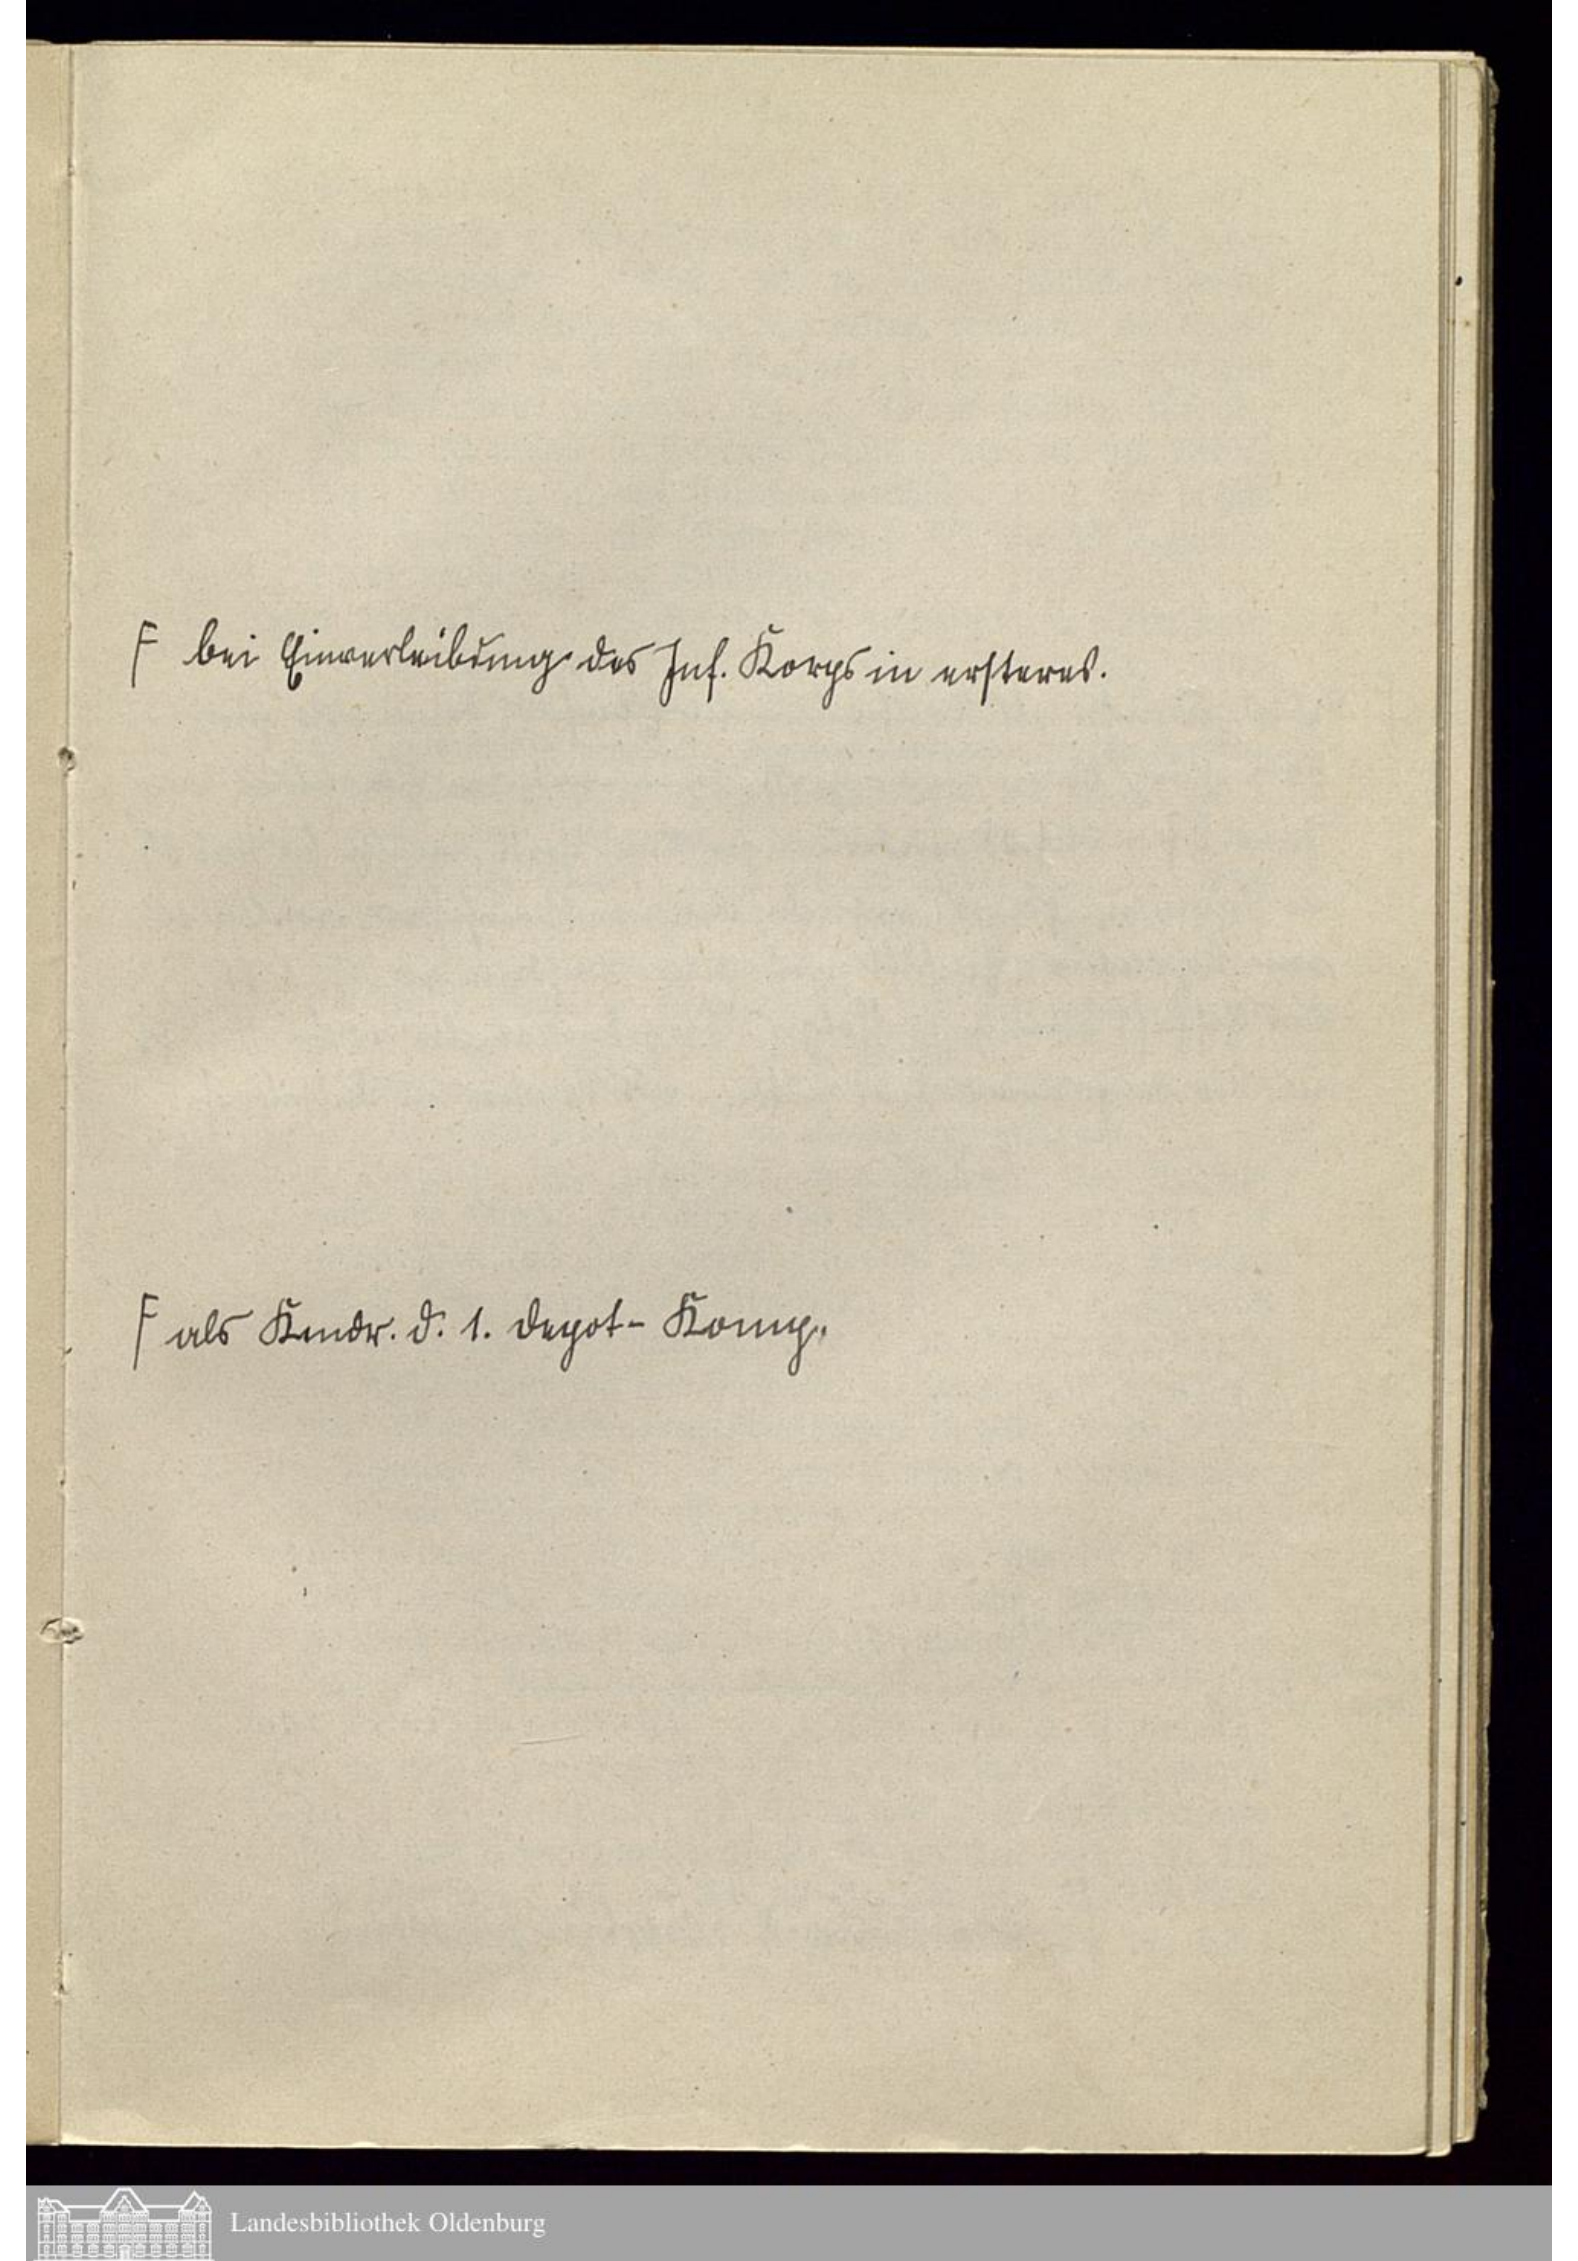 F bei Einverleibung des Inf. Korps in ersteres.
F als Kmdr. d. 1. Depot-Komp.
Landesbibliothek Oldenburg